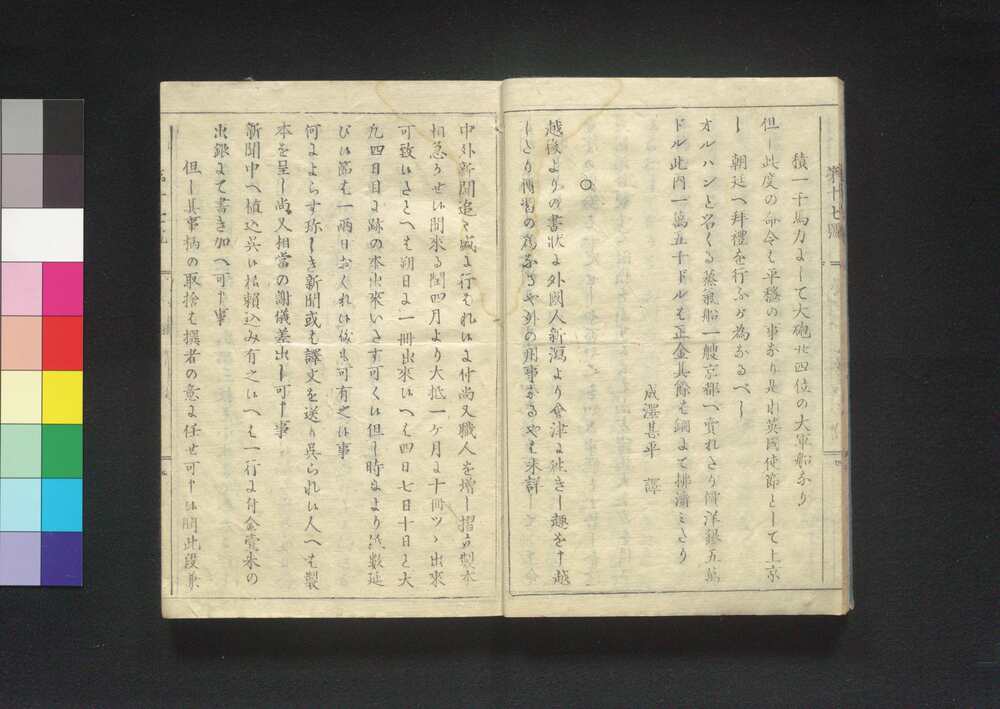 第十七號
積一千馬力よして大砲廿四位の大軍船なり
但し此度の命令は平穏の事なり是ハ英國使節として上京
し　朝廷へ拝禮を行ふが為なるべし
オルハンと名くる蒸氣船一艘京都へ賣れたり價洋銀五萬
ドル此内一萬五千ドルは正金其餘は銅よて拂濟ミたり
成澤甚平　譯
○
越後よりの書状よ外國人新潟より會津よ赴きし趣を申越
したり傳習の為なるや外の用事なるやは未詳
中外新聞追々盛よ行はれ候よ付尚又職人を増し摺立製本
相急かせ候間來る閏四月より大抵一ヶ月よ十冊ツヽ出來
可致候たとへは朔日よ一冊出來候へは四日七日十日と大
凡四日目よ跡の本出來いたす可く候但し時よより張數延
び候節は一兩日おくれ候儀も可有之候事
何よよらす珍しき新聞或は譯文を送り呉られ候人へは製
本を呈し尚又相當の謝儀差出し可申事
新聞中へ植込呉候様頼込み有之候へは一行よ付金壹朱の
出銀よて書き加へ可申事
但し其事柄の取捨は撰者の意よ任せ可申候間此段兼